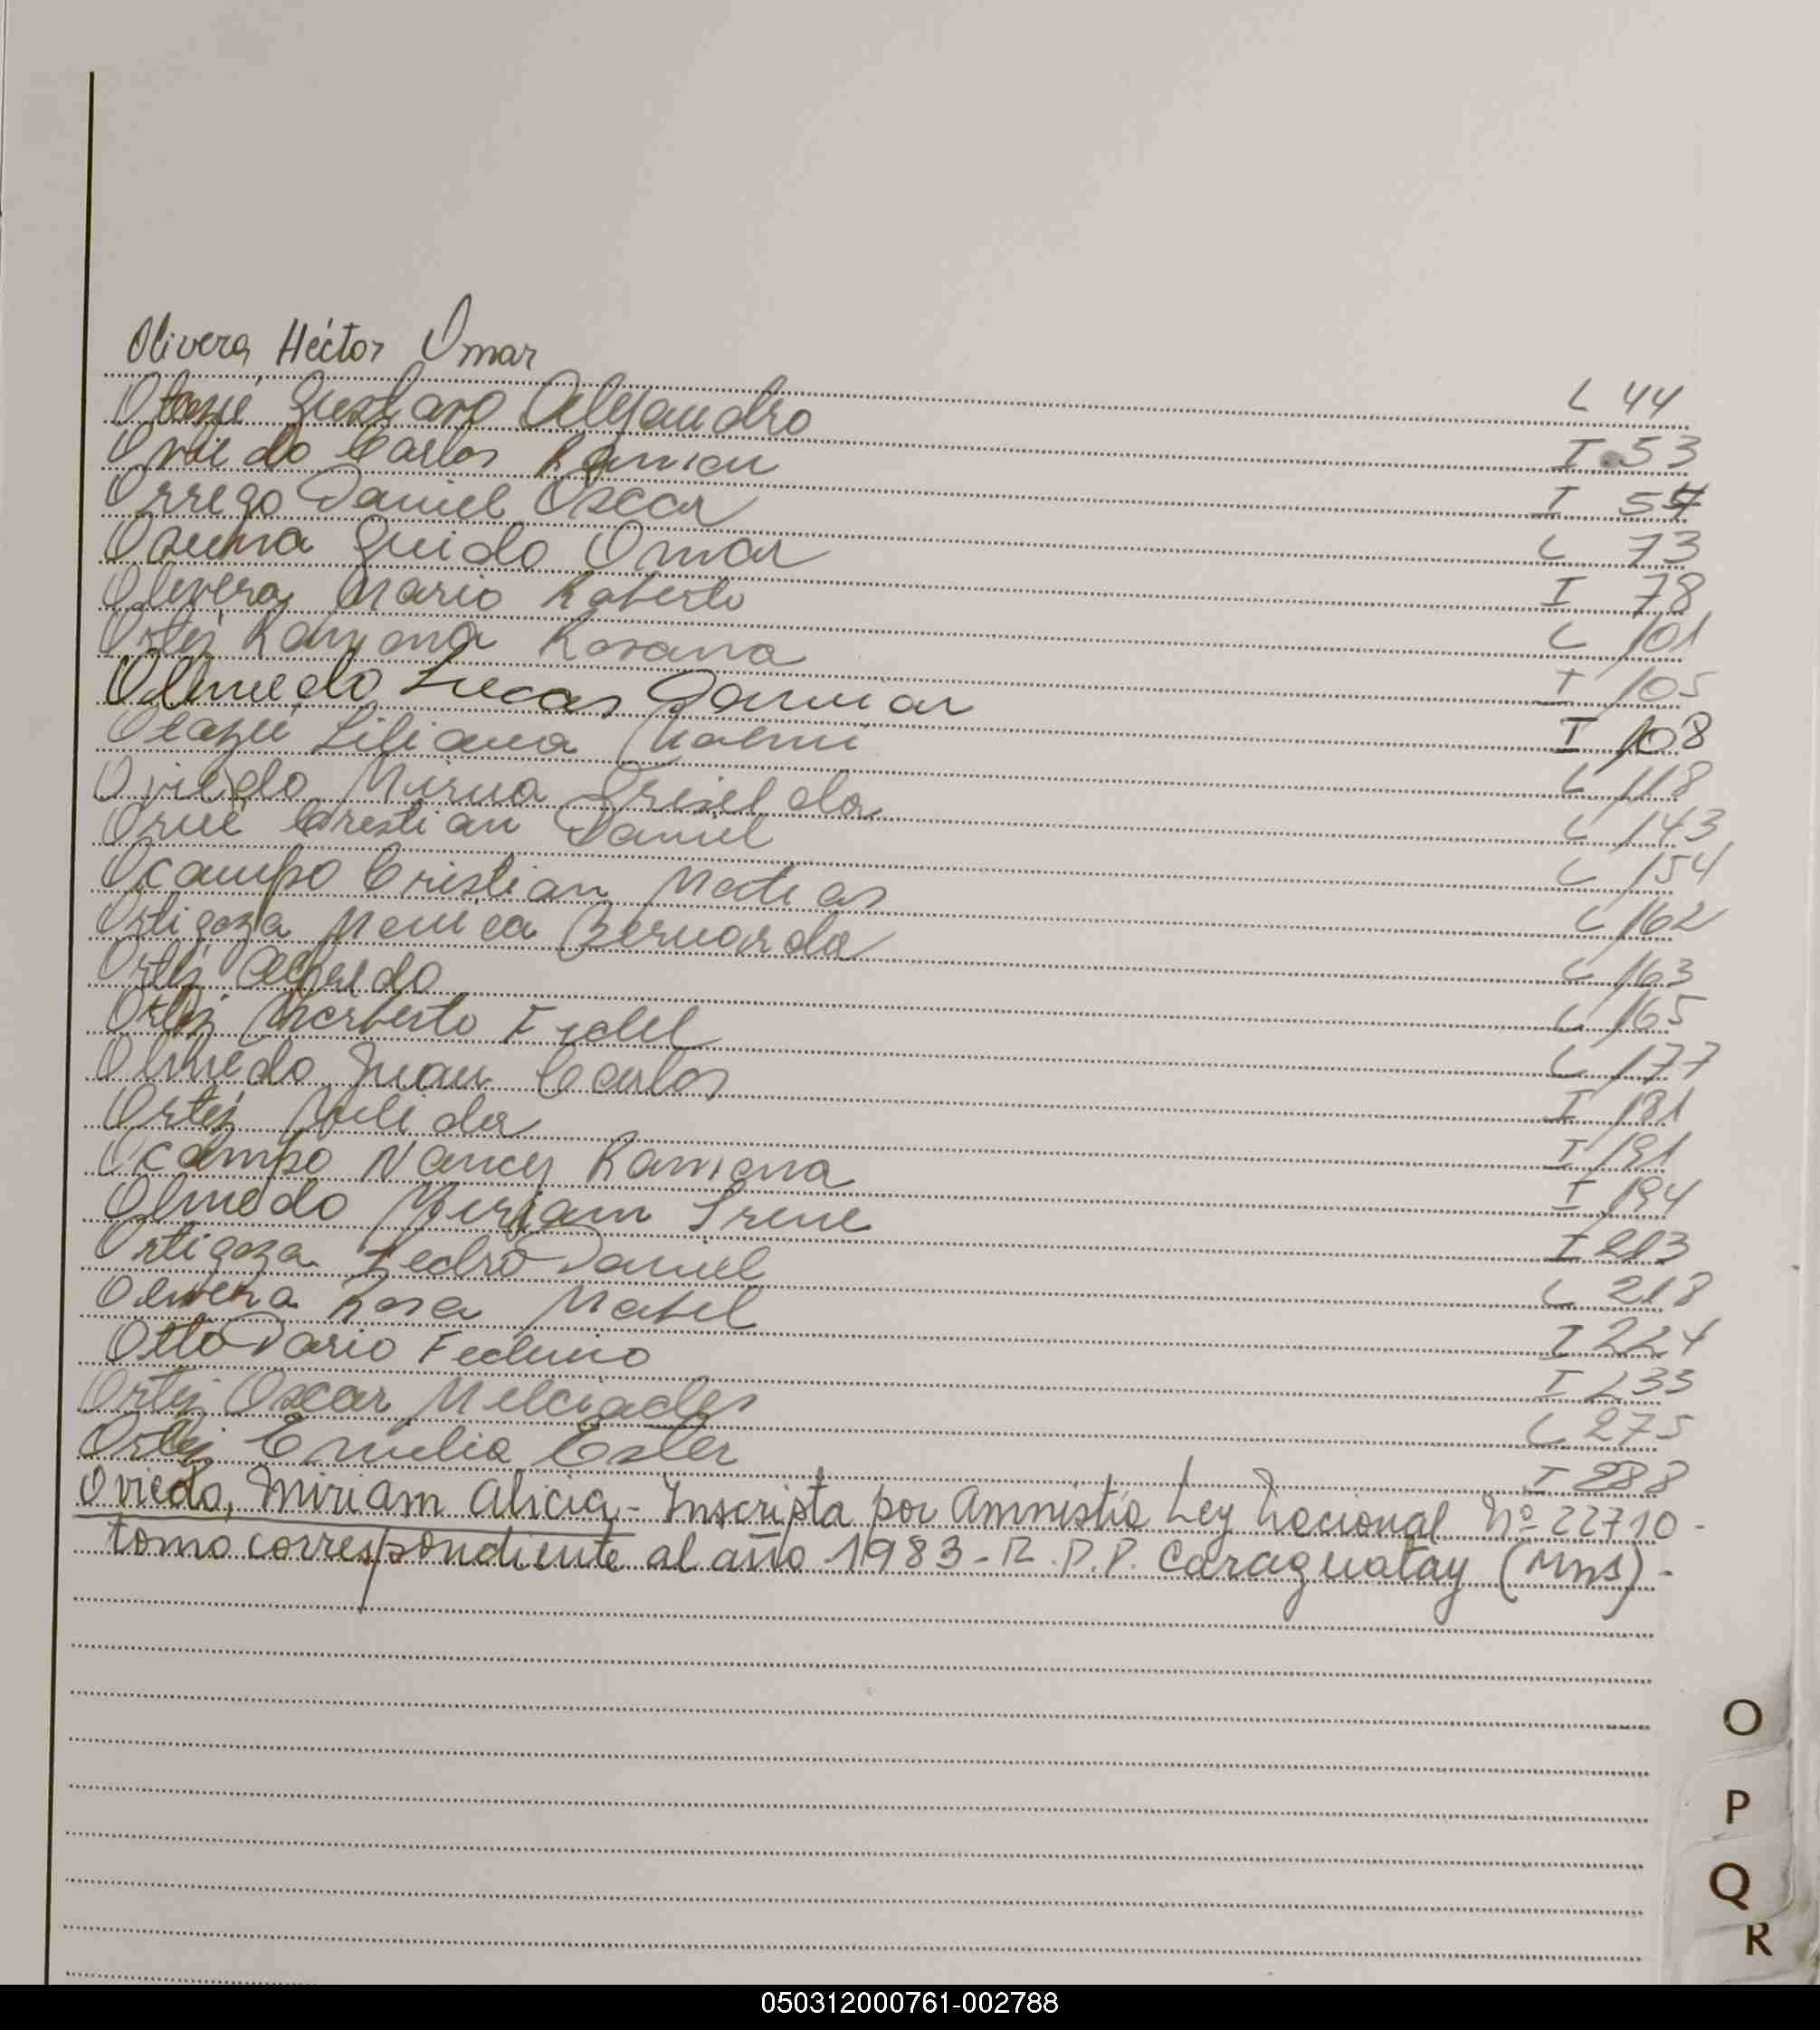 Olivera, Héctor Omar L 44
Otazú Gustavo Alejandro I 53
Oviedo Carlos Ramon I 57
Orrego Daniel Oscar L 73
Osuna Guido Omar I 78
Olivera Mario Roberto L 101
Ortiz Ramona Rosana I 105
Olmedo Lucas Damian I 108
Otazú Liliana Noemi L 118
Oviedo Mirna Griselda L 143
Orué Cristian Daniel L 154
Ocampo Cristian Matias L 162
Ortigoza Monica Bernarda L 163
Ortiz L 165
Ortiz Norberto Fidel L 177
Olmedo Juan Carlos I 181
Ortiz Nelida I 191
Ocampo Nancy Ramona I 194
Olmedo Miriam Irene I 213
Ortigoza Pedro Daniel L 218
Olivera Rosa Mabel I 224
Otto Dario I 235
Ortiz Oscar Melciades L 275
Ortiz Emilia Ester I 288
Oviedo, Miriam Alicia - Inscripta por Amnistía Ley Nacional Nº 22710 -
tomo correspondiente al año 1983 - R.P.P. Caraguatay (Mns) -
O
P
Q
R
050312000761-002788